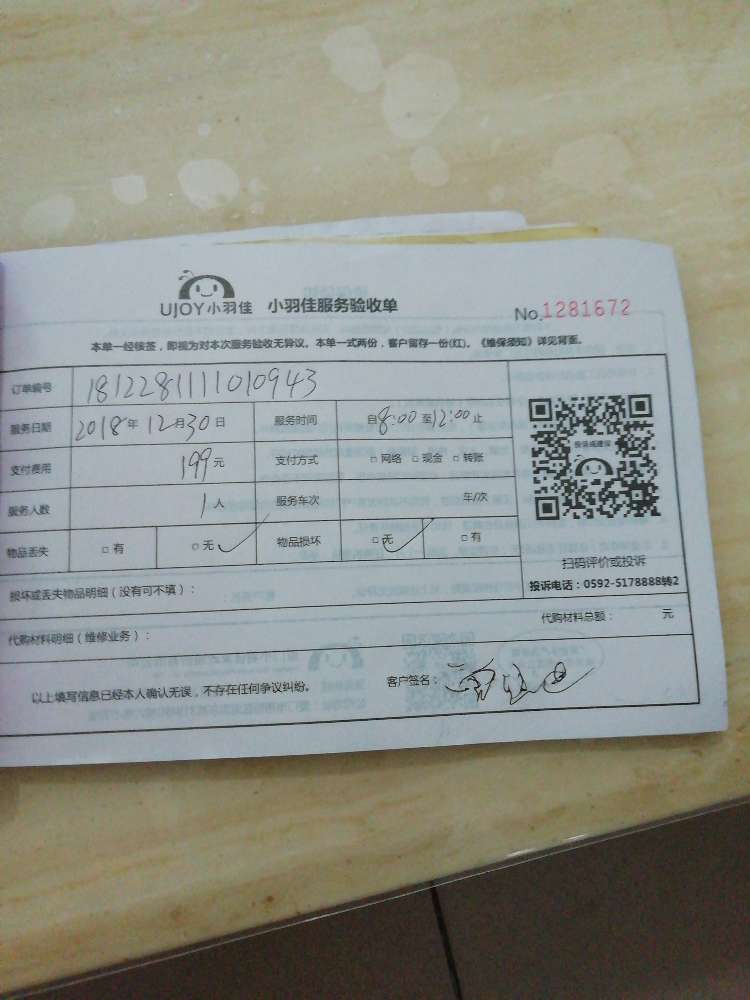 UJOY小羽佳 小羽佳服务验收单 No.1281672
本单一经核签，即视为对本次服务验收无异议。本单一式两份，客户留存一份(红)。《维保须知》详见背面。
订单编号 1812281111010943
服务日期 2018年12月30日 服务时间 自8:00至12:00止
支付费用 199元 支付方式 □网络 □现金 □转账
服务人数 1人 服务车次 车/次
物品丢失 □有 □无 物品损坏 □无 □有
扫码评价或投诉
投诉电话：0592-5178888转2
损坏或丢失物品明细（没有可不填）：
代购材料明细（维修业务）： 代购材料总额： 元
以上填写信息已经本人确认无误，不存在任何争议纠纷。 客户签名：